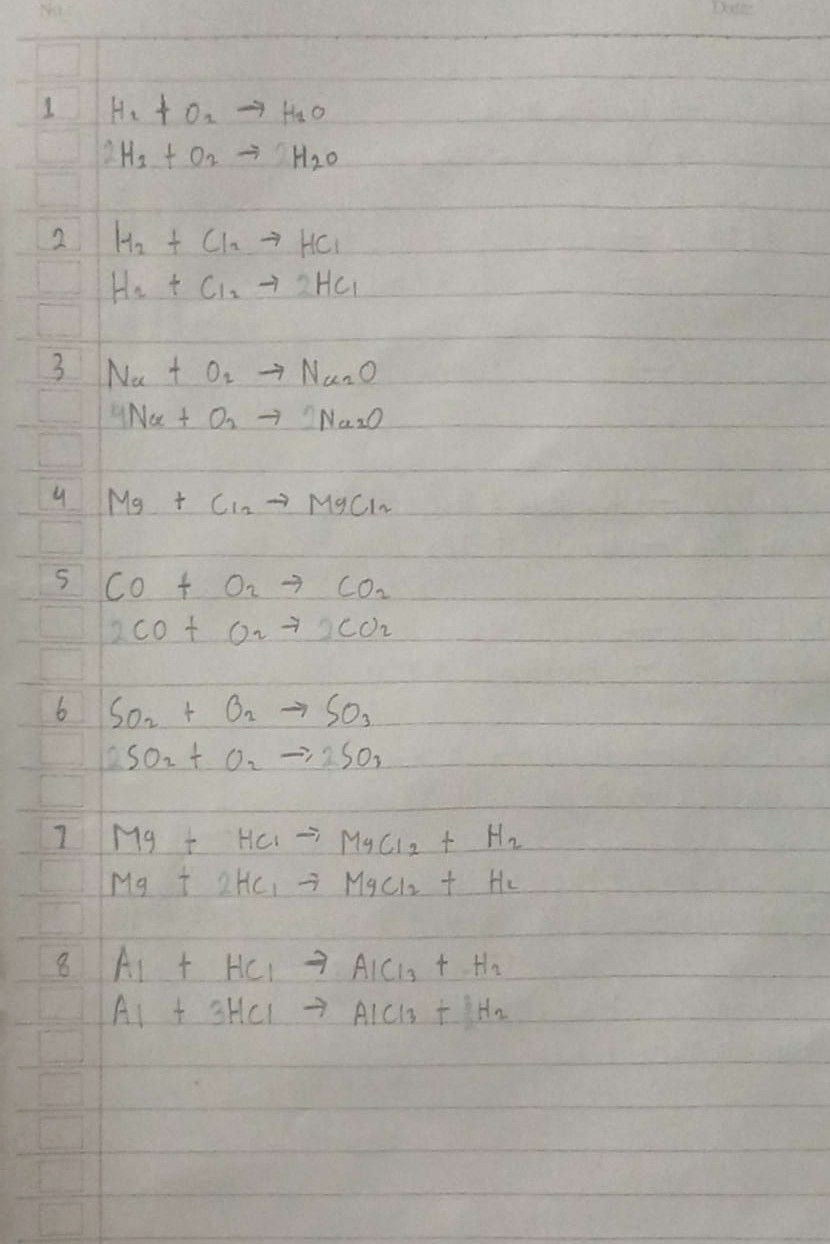 No.
Date:
1 H₂ + O₂ → H₂O
2H₂ + O₂ → 2H₂O
2 H₂ + Cl₂ → HCl
H₂ + Cl₂ → 2HCl
3 Na + O₂ → Na₂O
4Na + O₂ → 2Na₂O
4 Mg + Cl₂ → MgCl₂
5 CO + O₂ → CO₂
2CO + O₂ → 2CO₂
6 SO₂ + O₂ → SO₃
2SO₂ + O₂ → 2SO₃
7 Mg + HCl → MgCl₂ + H₂
Mg + 2HCl → MgCl₂ + H₂
8 Al + HCl → AlCl₃ + H₂
Al + 3HCl → AlCl₃ + H₂